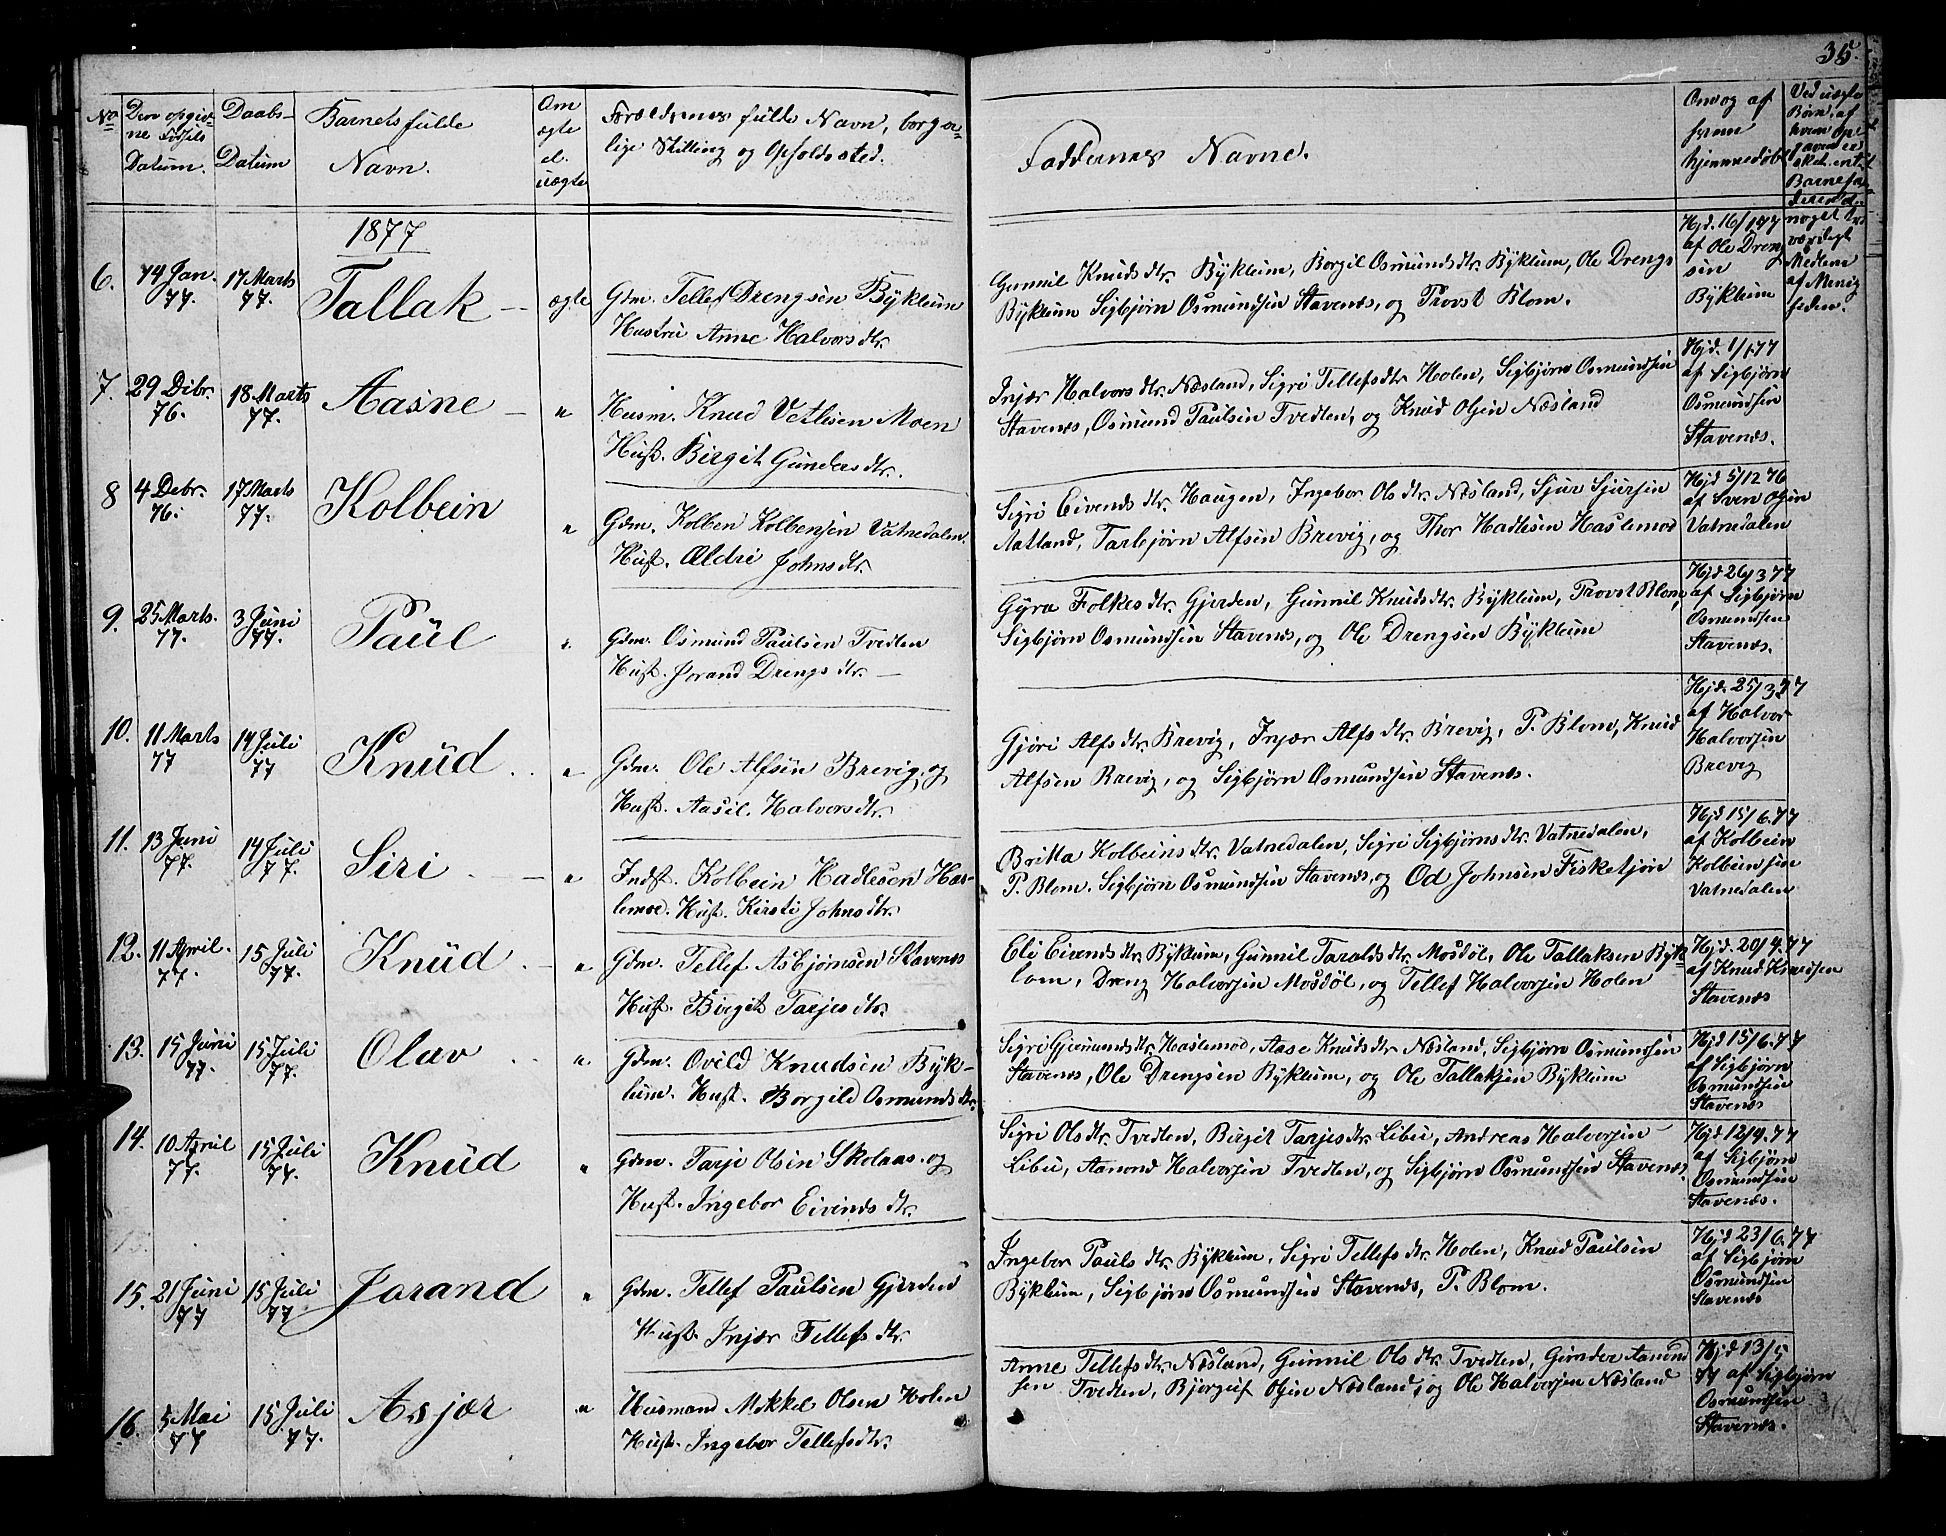 35.
No
Den opgiv-
ne Fødsels
Datum.
Daabs-
Datum
Barnets fulde
Navn.
Om
ægte
el.
uægte
Forældrenes fulde Navn, borger-
lige Stilling og Opholdssted.
Faddernes Navne.
Om og af
hvem
hjemmedøbt
Ved uægte
Børn, af
hvem op-
Barnefa-
noget tro-
værdigt
Medlem
af Menig
heden.
1877
6. 14 Jan. 77. 17 Marts 77. Tallak ægte
Gdm. Tellef Drengsen Bÿkleum
Hustru Anne Halvorsdtr.
Gunnil Knudsdtr. Bÿkleum, Borgil Osmundsdtr. Bÿkleum, Ole Drengs
Bÿkleum Sigbjørn Osmundsen Stavenæs, og Provst Blom.
Hjd. 16/1 77
af Ole Dreng
sen
Bÿkleum
7. 29 Dbr. 76. 18 Marts 77. Aasne "
Husm. Knud Vetlesen Moen
Hust. Birgit Gundersdtr.
Injær Halvorsdtr. Næsland, Sigri Tellefsdtr. Holen, Sigbjørn Osmundsen
Stavenæs, Osmund Paulsen Tvedten, og Knud Olsen Næsland
Hjd. 1/1 77
af Sigbjørn
Osmundsen
Stavenæs.
8 4 Debr. 76. 17 Marts 77. Kolbein "
Gdm. Kolben Kolbensen Vatnedalen.
Hust. Ældri Johnsdtr.
Sigri Eivendsdtr. Haugen, Ingebor Olsdtr. Næsland, Sjur Sjursen
Aatland, Tarbjørn Alfsen Brevig, og Thor Hadlesen Haslemoe
Hjd 5/12 76
af Sven Olsen
Vatnedalen
9. 25 Marts. 77. 3 Juni 77. Paul "
Gdm. Osmund Paulsen Tvedten
Hust. Jorand Drengsdtr. —
Gÿro Folkesdtr. Gjerden, Gunnil Knudsdtr. Bÿkleum, Provst Blom,
Sigbjørn Osmundsen Stavenæs, og Ole Drengsen Bÿkleum
Hjd 26/3 77
af Sigbjørn
Osmundsen
Stavenæs.
10. 11 Marts 77 14 Juli 77 Knud. "
Gdm. Ole Alfsen Brevig, og
Hust. Aasil Halvorsdtr.
Gjøri Alfsdtr. Brevig, Injær Alfsdtr. Brevig, P. Blom, Knud
Alfsen Brevig, og Sigbjørn Osmundsen Stavenæs.
Hjd. 25/3 77
af Halvor
Halvorsen
Brevig
11. 13 Juni 77. 14 Juli 77. Siri. "
Indst. Kolbein Hadlesen Has-
lemoe. Hust. Kirsti Johnsdtr.
Britta Kolbeinsdtr. Vatnedalen, Sigri Sigbjørnsdtr. Vatnedalen,
P. Blom. Sigbjørn Osmundsen Stavenæs, og Od Johnsen Fisketjøn
Hjd 15/6. 77
af Kolbein
Kolbeinsen
Vatnedalen
12. 11 April. 77. 15 Juli 77. Knud. "
Gdm. Tellef Asbjørnsen Stavenæs
Hust. Birgit Tarjesdtr.
Eli Eivendsdtr. Bÿkleum, Gunnil Taraldsdtr. Mosdøl, Ole Tallaksen Bÿk-
leum, Dreng Halvorsen Mosdøl, og Tellef Halvorsen Holen
Hjd. 20/4. 77
af Knud Knudsen
Stavenæs
13. 15 Juni 77. 15 Juli 77. Olav "
Gdm. Ovild Knudsen Bÿk-
leum. Hust. Borgild Osmundsdtr.
Sigri Gjermundsdtr. Haslemoe, Aase Knudsdtr. Næsland, Sigbjørn Osmundsen
Stavenæs, Ole Drengsen Bÿkleum, og Ole Tallaksen Bÿkleum
Hjd 15/6. 77
af Sigbjørn
Osmundsen
Stavenæs
14. 10 April 77. 15 Juli 77. Knud "
Gdm. Tarje Olsen Skolaas. og
Hust. Ingebor Eivendsdtr.
Sigri Olsdtr. Tvedten, Birgit Tarjesdtr. Libu, Andreas Halvorsen
Libu, Aanond Halvorsen Tvedten, og Sigbjørn Osmundsen Stavenæs.
Hjd 12/4. 77
af Sigbjørn
Osmundsen
Stavenæs.
15. 21 Juni 77 15 Juli 77. Jorand "
Gdm. Tellef Paulsen Gjerden
Hust. Injær Tellefsdtr.
Ingebor Paulsdtr. Bÿkleum, Sigri Tellefsdtr. Holen, Knud Paulsen
Bÿkleum, Sigbjørn Osmundsen Stavenæs, P. Blom.
Hjd 23/6. 77
af Sigbjørn
Osmundsen
Stavenæs
16. 5 Mai 77 15 Juli 77. Asjær "
Husmand Mikkel Olsen Holen
Hust. Ingebor Tellefsdtr.
Anne Tellefsdtr. Næsland, Gunnil Olsdtr. Tvedten, Gunder Aanund
sen Tvedten, Bjorguf Olsen Næsland, og Ole Halvorsen Næsland
Hjd 13/5
77 af Sigbjørn
Osmundsen
Stavenæs.